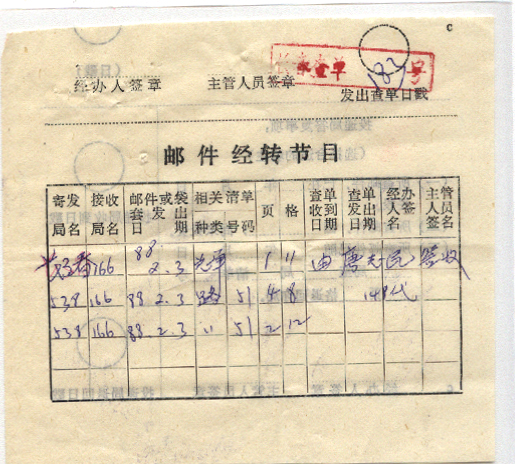 C
查单 182 号
经办人签章 主管人员签章 发出查单日戳
邮件经转节目
寄发局名 接收局名 邮件或袋套发出日期 相关清单种类 号码 页 格 查单收到日期 查单发出日期 经办人员签名 主管人员签名
166 88 2.3 1 11 由 唐志民 签收
538 166 88 2.3 路 51 4 8 149 代
538 166 88 2.3 〃 51 2 12